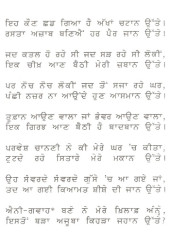 ਇਹ ਕੌਣ ਛਡ ਗਿਆ ਹੈ ਅੱਖਾਂ ਚਟਾਨ ਉੱਤੇ।
ਰਸਤਾ ਅਜ਼ਾਬ ਬਣਿਐਂ ਹਰ ਪੈਰ ਜਾਨ ਉੱਤੇ।
ਜਦ ਕਤਲ ਹੋ ਰਹੇ ਸੀ ਜਦ ਸੜ ਰਹੇ ਸੀ ਲੋਕੀਂ,
ਇਕ ਚੀਖ਼ ਆਣ ਬੈਠੀ ਮੇਰੀ ਜ਼ਬਾਨ ਉੱਤੇ।
ਪਰ ਨੋਚ ਨੋਚ ਲੋਕੀਂ ਜਦ ਤੋਂ ਸਜਾ ਰਹੇ ਘਰ,
ਪੰਛੀ ਨਜ਼ਰ ਨਾ ਆਉਂਦੇ ਹੁਣ ਆਸਮਾਨ ਉੱਤੇ।
ਤੂਫ਼ਾਨ ਆਉਣ ਵਾਲਾ ਜਾਂ ਭੰਵਰ ਆਉਣ ਵਾਲਾ,
ਇਕ ਗਿਰਝ ਆਣ ਬੈਠੀ ਹੈ ਬਾਦਬਾਨ ਉੱਤੇ।
ਪਰਵੇਸ਼ ਚਾਨਣੀ ਨੇ ਕੀ ਮੇਰੇ ਘਰ 'ਚ ਕੀਤਾ,
ਟੁਟਦੇ ਰਹੇ ਸਿਤਾਰੇ ਮੇਰੇ ਮਕਾਨ ਉੱਤੇ।
ਉਹ ਸੰਵਰਦੇ ਸੰਵਰਦੇ ਗੁੱਸੇ 'ਚ ਆ ਗਏ ਜਾਂ,
ਤਦ ਆ ਗਈ ਕਿਆਮਤ ਸ਼ੀਸ਼ੇ ਦੀ ਜਾਨ ਉੱਤੇ।
ਐਨੀ-ਗਵਾਹ* ਬਣੇ ਨੇ ਮੇਰੇ ਖ਼ਿਲਾਫ਼ ਅੰਨ੍ਹੇ,
ਇਸਤੋਂ ਬੜਾ ਅਜੂਬਾ ਕਿਹੜਾ ਜਹਾਨ ਉੱਤੇ?